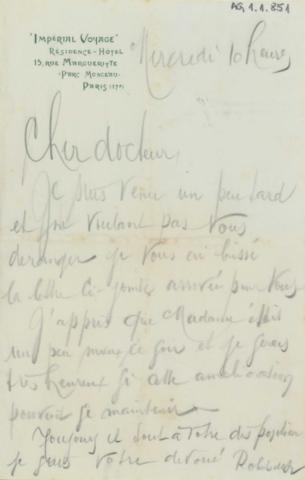 AG.1.1.851
"IMPERIAL VOYAGE"
RÉSIDENCE-HÔTEL
15, RUE MARGUERITTE
(PARC MONCEAU)
PARIS (17e)
Mercredi 10 heures
Cher docteur
Je suis venu un peu tard
et ne voulant pas vous
deranger je vous ai laissé
la lettre ci-jointe arrivée pour vous
J'appris que Madame était
un peu mieux ce soir et je serais
très heureux si cette amelioration
pouvait se maintenir
Toujours et tout à votre disposition
je suis votre devoué